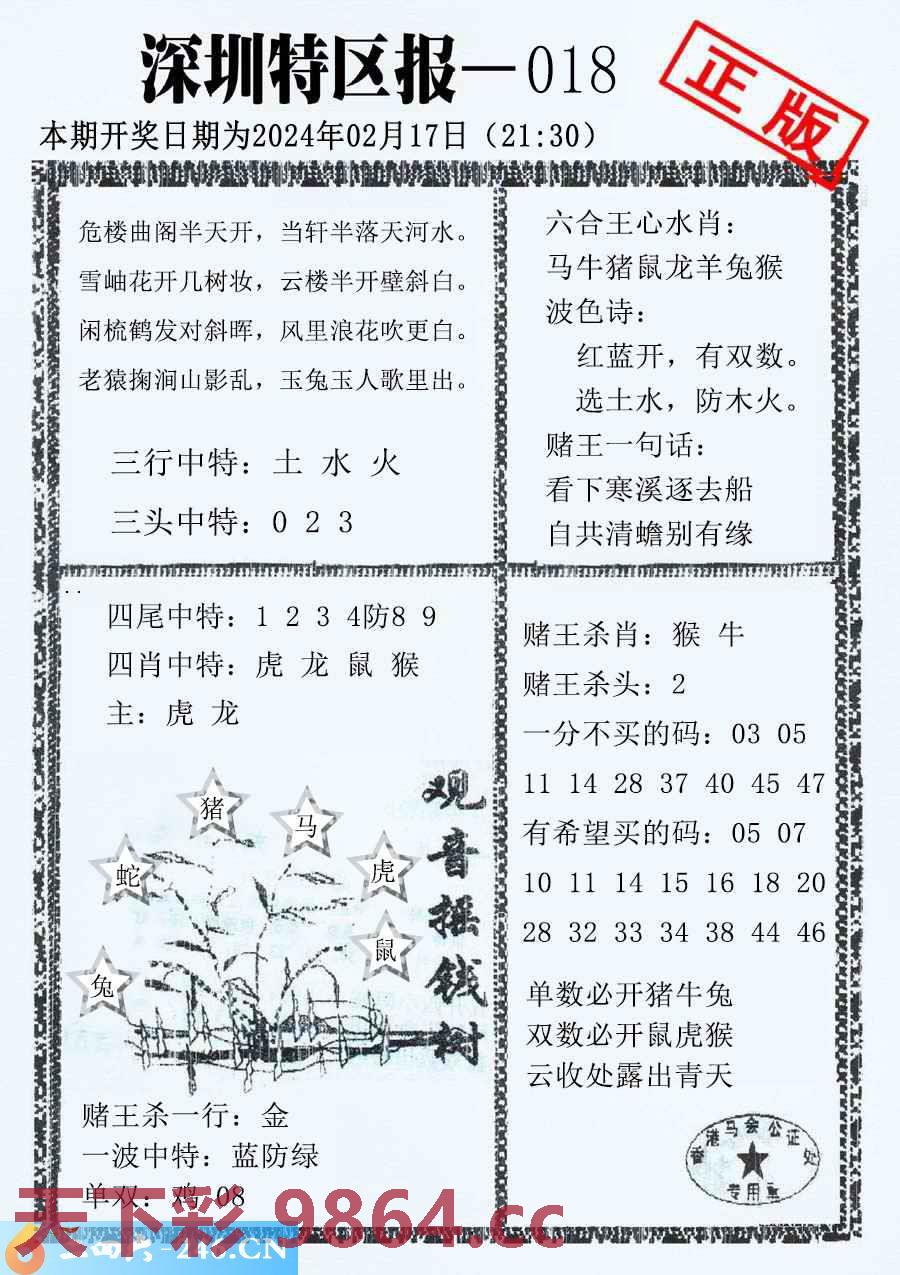 深圳特区报—018
正版
本期开奖日期为2024年02月17日（21:30）
危楼曲阁半天开，当轩半落天河水。
雪岫花开几树妆，云楼半开壁斜白。
闲梳鹤发对斜晖，风里浪花吹更白。
老猿掬涧山影乱，玉兔玉人歌里出。
三行中特：土 水 火
三头中特：0 2 3
六合王心水肖：
马牛猪鼠龙羊兔猴
波色诗：
红蓝开，有双数。
选土水，防木火。
赌王一句话：
看下寒溪逐去船
自共清蟾别有缘
四尾中特：1 2 3 4防8 9
四肖中特：虎 龙 鼠 猴
主：虎 龙
猪
马
蛇
虎
鼠
兔
观音摇钱树
赌王杀一行：金
一波中特：蓝防绿
单双：鸡 08
赌王杀肖：猴 牛
赌王杀头：2
一分不买的码：03 05
11 14 28 37 40 45 47
有希望买的码：05 07
10 11 14 15 16 18 20
28 32 33 34 38 44 46
单数必开猪牛兔
双数必开鼠虎猴
云收处露出青天
香港马会公证处
专用章
天下彩.9864.cc